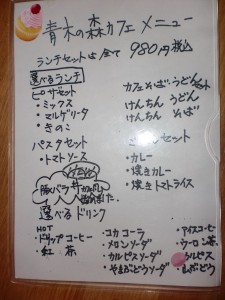 青木の森カフェメニュー
ランチセットは全て 980円税込
選べるランチ
ピザセット
・ミックス
・マルゲリータ
・きのこ
パスタセット
・トマトソース
豚バラ丼
選べるドリンク
HOT
・ドリップコーヒー
・紅茶
カフェそば・うどんセット
けんちんうどん
けんちんそば
セット
・カレー
・焼きカレー
・焼きトマトライス
・コカコーラ
・メロンソーダ
・カルピスソーダ
・やまぶどうソーダ
・アイスコーヒー
・ウーロン茶
・カルピス
・山ぶどう